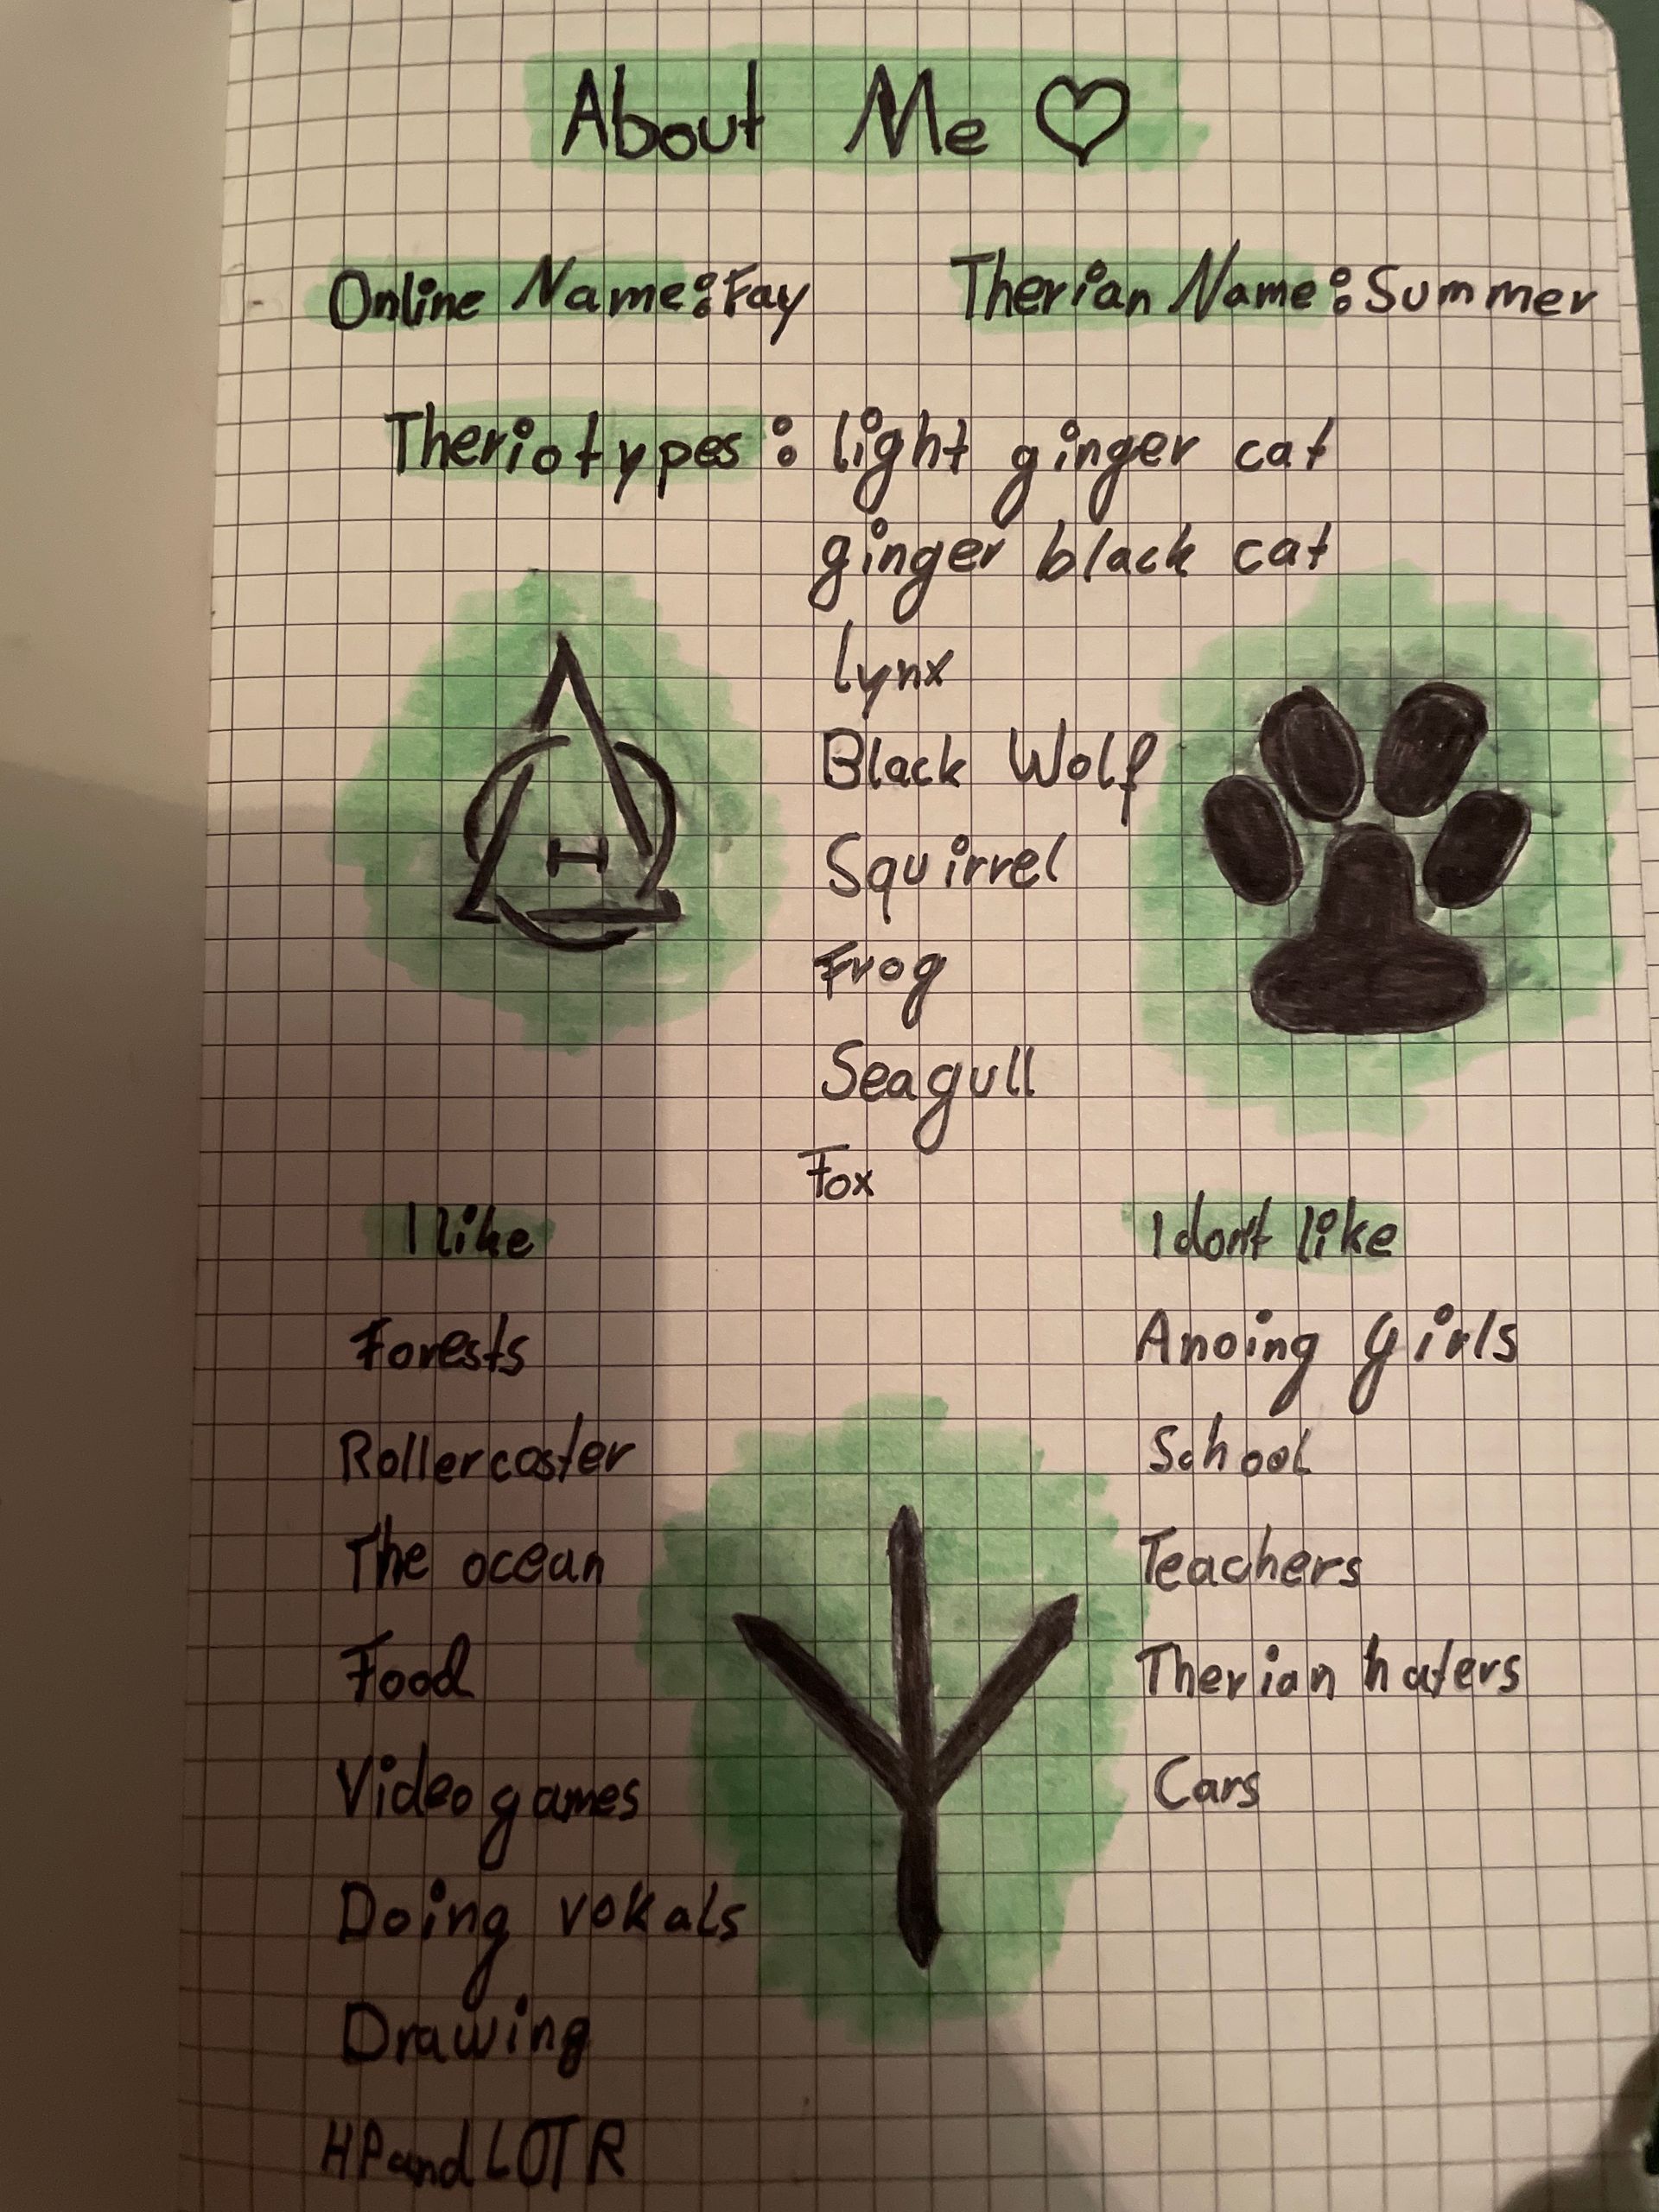 About Me ♡
Online Name: Fay
Therian Name: Summer
Theriotypes: light ginger cat
ginger black cat
Lynx
Black Wolf
Squirrel
Frog
Seagull
Fox
I like
Forests
Rollercoster
The ocean
Food
Videogames
Doing vokals
Drawing
HP and LOTR
I don't like
Anoing girls
School
Teachers
Therian haters
Cars